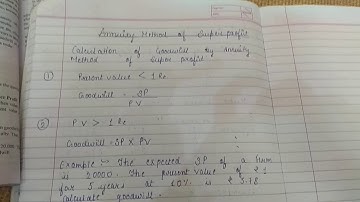 Annuity Method of Super profit
Calculation of Goodwill by annuity
Method of Super profit
① Present value < 1 Re
Goodwill = SP
PV
② PV > 1 Re
Goodwill = SP X PV
Example :- The expected SP of a firm
is 20000. The present value of ₹ 1
for 5 years at 10% is ₹ 3.78
Calculate goodwill.